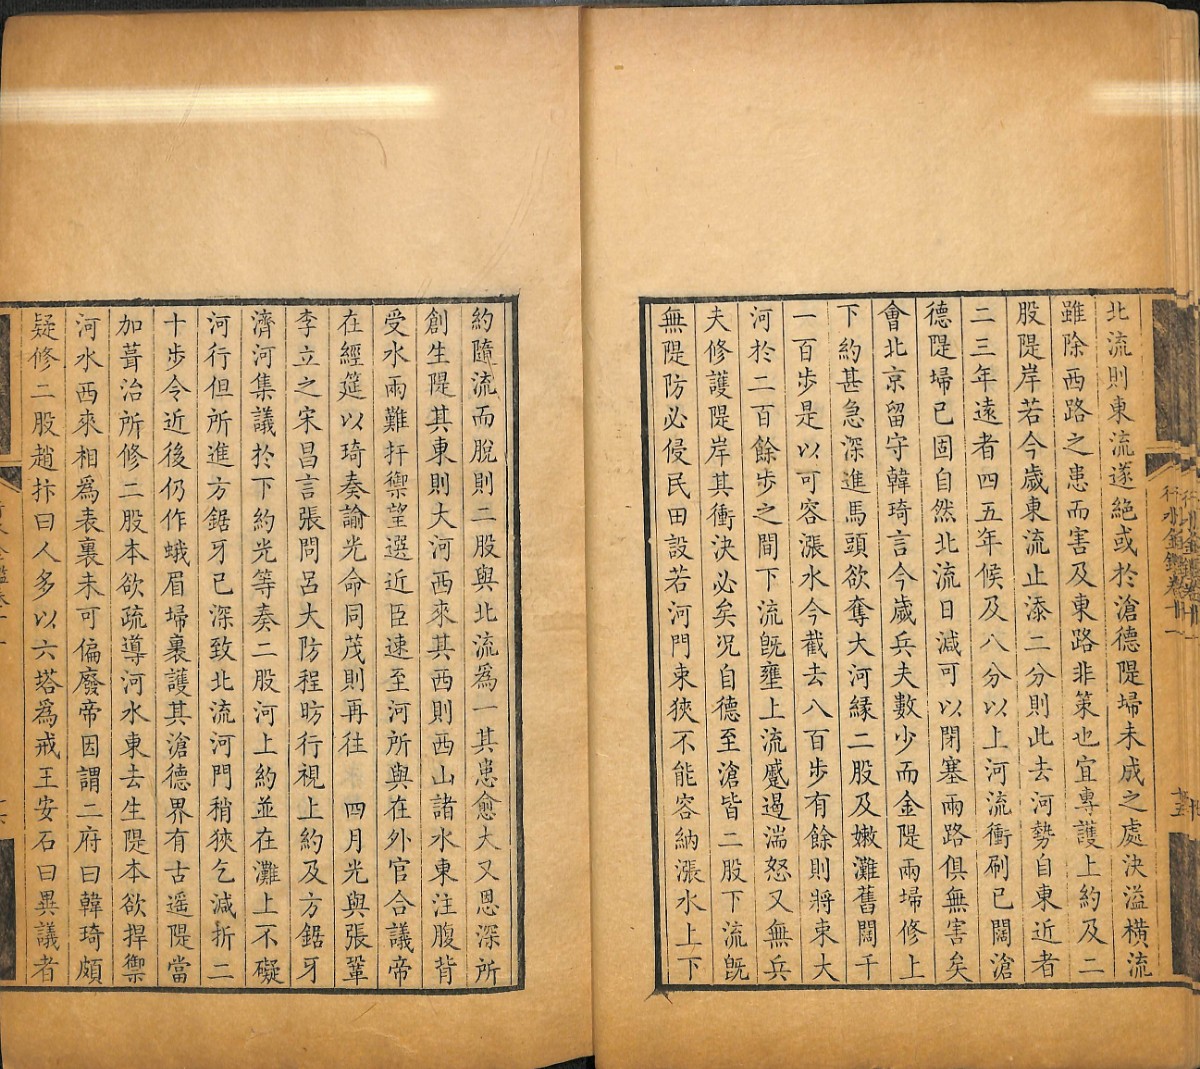 北流則東流遂絕或於滄德隄埽未成之處決溢橫流
雖除西路之患而害及東路非策也宜專護上約及二
股隄岸若今歲東流止添二分則此去河勢自東近者
二三年遠者四五年候及八分以上河流衝刷已闊滄
德隄埽已固自然北流日減可以閉塞兩路俱無害矣
會北京留守韓琦言今歲兵夫數少而金隄兩埽修上
下約甚急深進馬頭欲奪大河緣二股及嫩灘舊闊千
一百步是以可容漲水今截去八百步有餘則將束大
河於二百餘步之間下流旣壅上流蹙遏湍怒又無兵
夫修護隄岸其衝決必矣況自德至滄皆二股下流旣
無隄防必侵民田設若河門束狹不能容納漲水上下
約隨流而脫則二股與北流爲一其患愈大又恩深所
創生隄其東則大河西來其西則西山諸水東注腹背
受水兩難扞禦望選近臣速至河所與在外官合議帝
在經筵以琦奏諭光命同茂則再往　四月光與張鞏
李立之宋昌言張問呂大防程昉行視上約及方鋸牙
濟河集議於下約光等奏二股河上約並在灘上不礙
河行但所進方鋸牙已深致北流河門稍狹乞減折二
十步令近後仍作蛾眉埽裹護其滄德界有古遥隄當
加葺治所修二股本欲疏導河水東去生隄本欲捍禦
河水西來相爲表裏未可偏廢帝因謂二府曰韓琦頗
疑修二股趙抃曰人多以六塔爲戒王安石曰異議者
行水金鑑卷十一